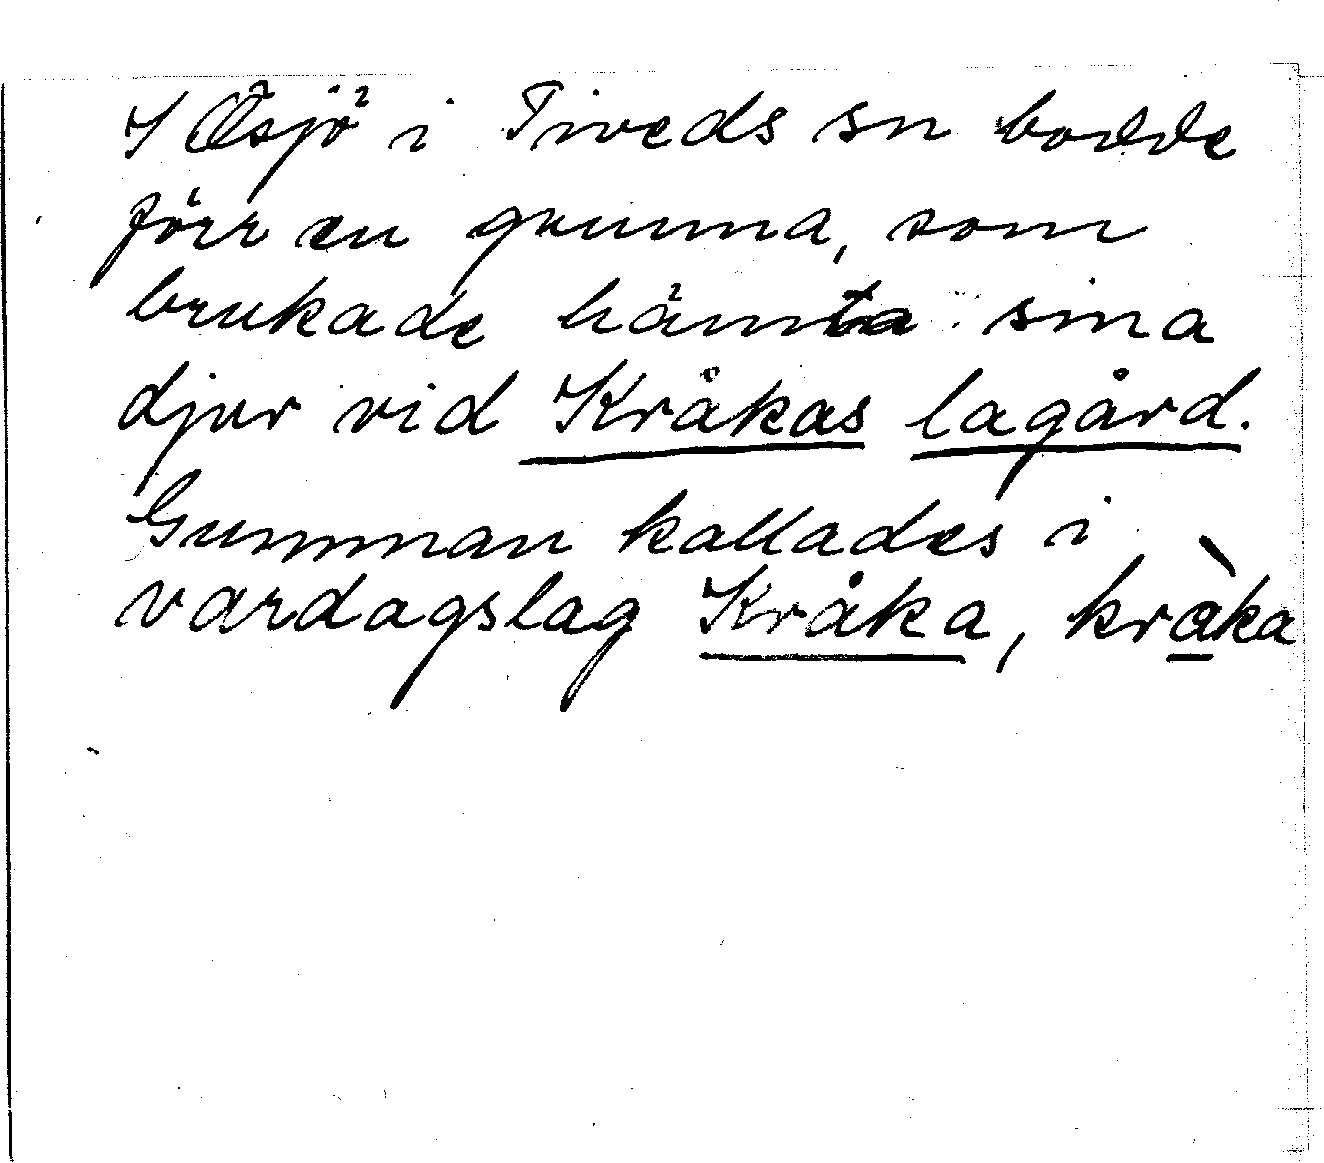 I Ösjö i Tiveds sn bodde
förr en gumma, som
brukade hämta sina
djur vid Kråkas lagård.
Gumman kallades i
vardagslag Kråka, kràka